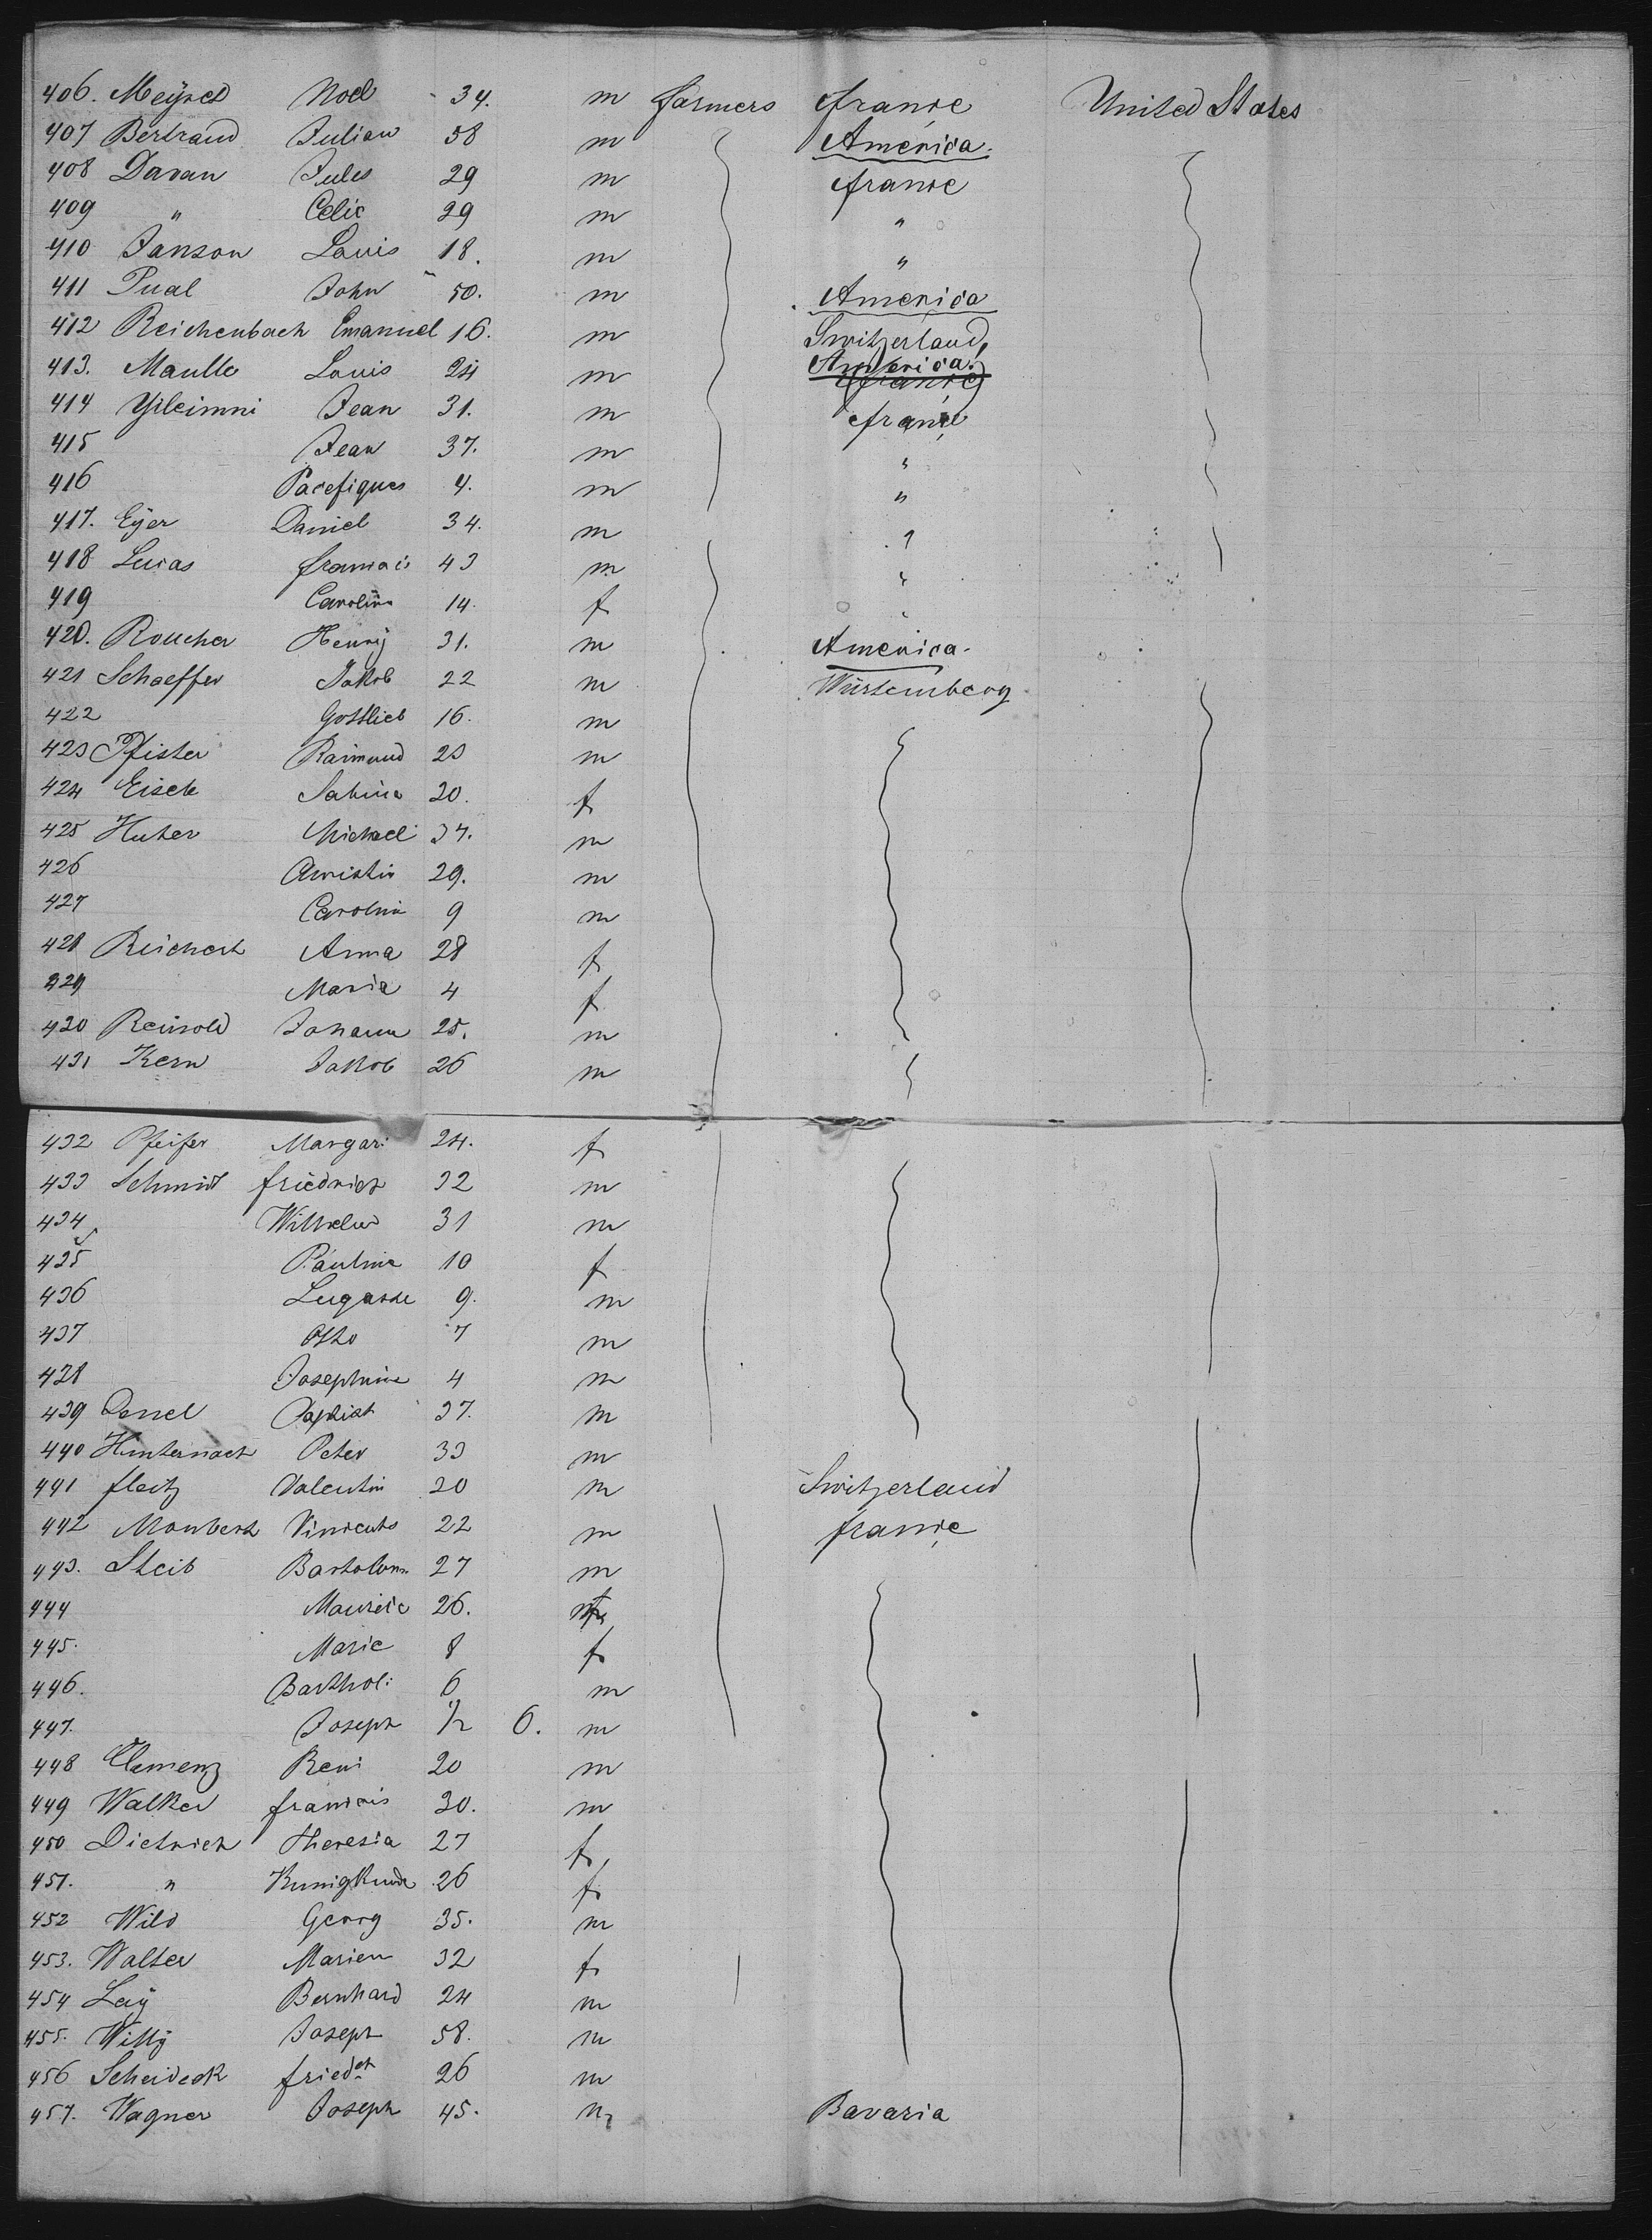 406. Meyret Noel 34. m farmers france United States
407 Bertrand Julien 58 m America.
408 Davan Jules 29 m france
409 " Celie 29 m "
410 Janson Louis 18. m "
411 Pual John 50. m America
412 Reichenbach Emanuel 16. m Switzerland,
413. Maulle Louis 24 m America. france
414 Jean 31. m france
415 Jean 37. m "
416 Pacefiques 4. m "
417. Eyer Daniel 34. m "
418 Lucas francais 43 m "
419 Carolina 14. f "
420. Roucher Henry 31. m America.
421 Schaeffer Jakob 22 m Würtemberg
422 Gottlieb 16. m
423 Pfister Raimund 23 m
424 Eisele Sabina 20. f
425 Huber Michael 37. m
426 Christin 29. m
427 Carolina 9 m
428 Reichert Anna 28 f
429 Maria 4 f
430 Reinold Johann 25. m
431 Kern Jakob 26 m
432 Pfeifer Margar: 24. f
433 Schmidt friedrich 32 m
434 Wilhelm 31 m
435 Paulina 10 f
436 9. m
437 Otto 7 m
438 Josephine 4 m
439 Baptist 37. m
440 Peter 33 m
441 fleitz Valentin 20 m Switzerland
442 Monbert 22 m france
443. Steib Bartolom 27 m
444 26.
445. Marie 8 f
446. Barthol: 6 m
447. Joseph 1/2 6. m
448 Clemenz Remi 20 m
449 Walker francois 30. m
450 Dietrich Theresia 27 f
451. " Kunigkunda 26 f
452 Wild Georg 35. m
453. Walter Marien 32 f
454 Lay Bernhard 24 m
455. Willy Joseph 58. m
456 Scheideck fried 26 m
457. Wagner Joseph 45. m Bavaria